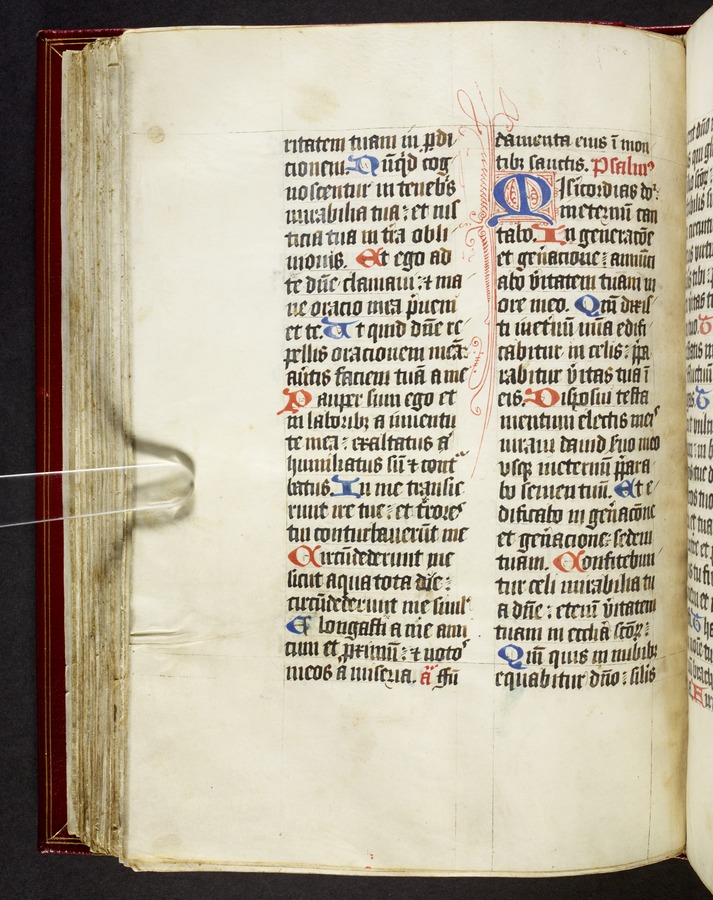 ritatem tuam in ꝑdi
cionem. Nūq̄d cog
noscentur in teneb̾s
mirabilia tua : et ius
ticia tua in t̾ra obli
uionis. Et ego ad
te dūe clamaui : ⁊ ma
ne oracio mea p̄ueni
et te. Ut quid dūe re
pellis oracionem meā :
au̾tis faciem tuā a me
Pauper sum ego et
in laboribꝫ a iuuentu
te mea : exaltatus a̾
humiliatus sū ⁊ cont̾
batus. In me transie
runt ire tue : et t̾rores
tui conturbauerūt me
Circūdederunt me
sicut aqua tota die :
circūdederunt me simĺ
Elongasti a me ami
cum et ꝓximū : ⁊ noto̾
meos a miseria. a̾ ffū
damenta eius ī mon
tibꝫ sanctis. Psalm̾
Misicordias do̾ :
in eternū can
tabo. In generacōe
et gen̄acione : annūci
abo v̾itatem tuam in
ore meo. Qm̄ dixis
ti in et̾nū mīa edifi
cabitur in celis : p̄pa
rabitur v̾itas tua ī
eis. Disposui testa
mentum electis meis
iuraui dauid s̾uo meo
vsqꝫ in eternū p̄para
bo semen tuū. Et e
dificabo in gen̄acōne
et gen̄acione : sedem
tuam. Confitebun
tur celi mirabilia tu
a dn̄e : etenī v̾itatem
tuam in eccĺia sc̄oꝝ :
Qm̄ quis in nubibꝫ
equabitur dn̄o : silis